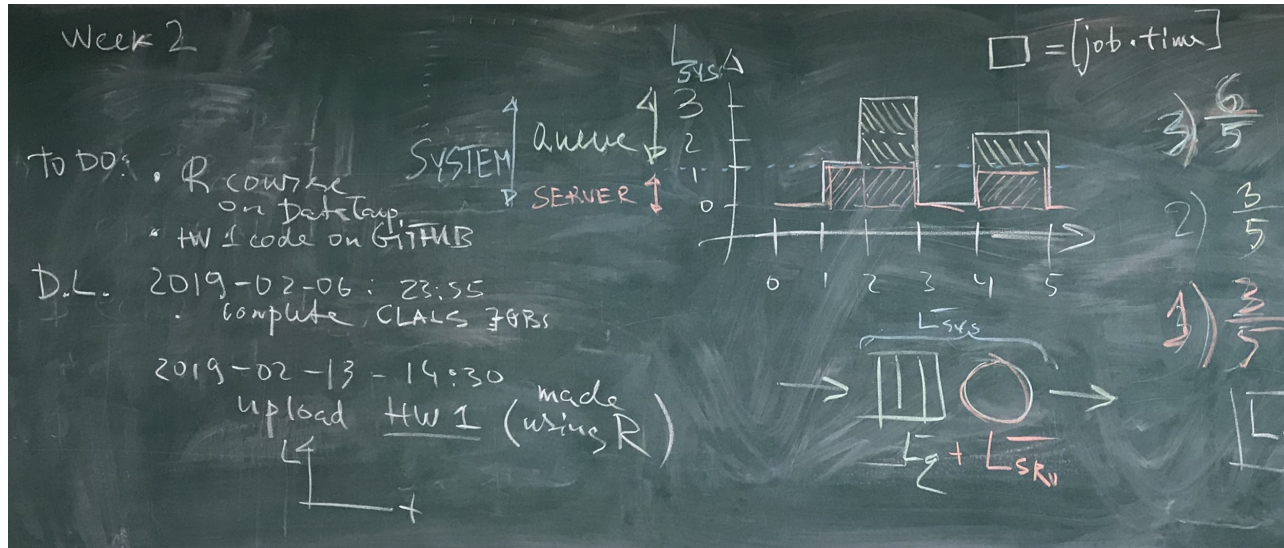 Week 2
TO DO: • R course
on DataCamp
• HW 1 code on GITHUB
D.L. 2019-02-06 : 23:55
• complete
2019-02-13-14:30
upload HW 1 (made using R)
L
t
SYSTEM
Queue
SERVER
L sys
3
2
1
0
0 1 2 3 4 5
□ = [job·time]
3) 6/5
2) 3/5
1) 3/5
L sys
Lq + L SRV
L